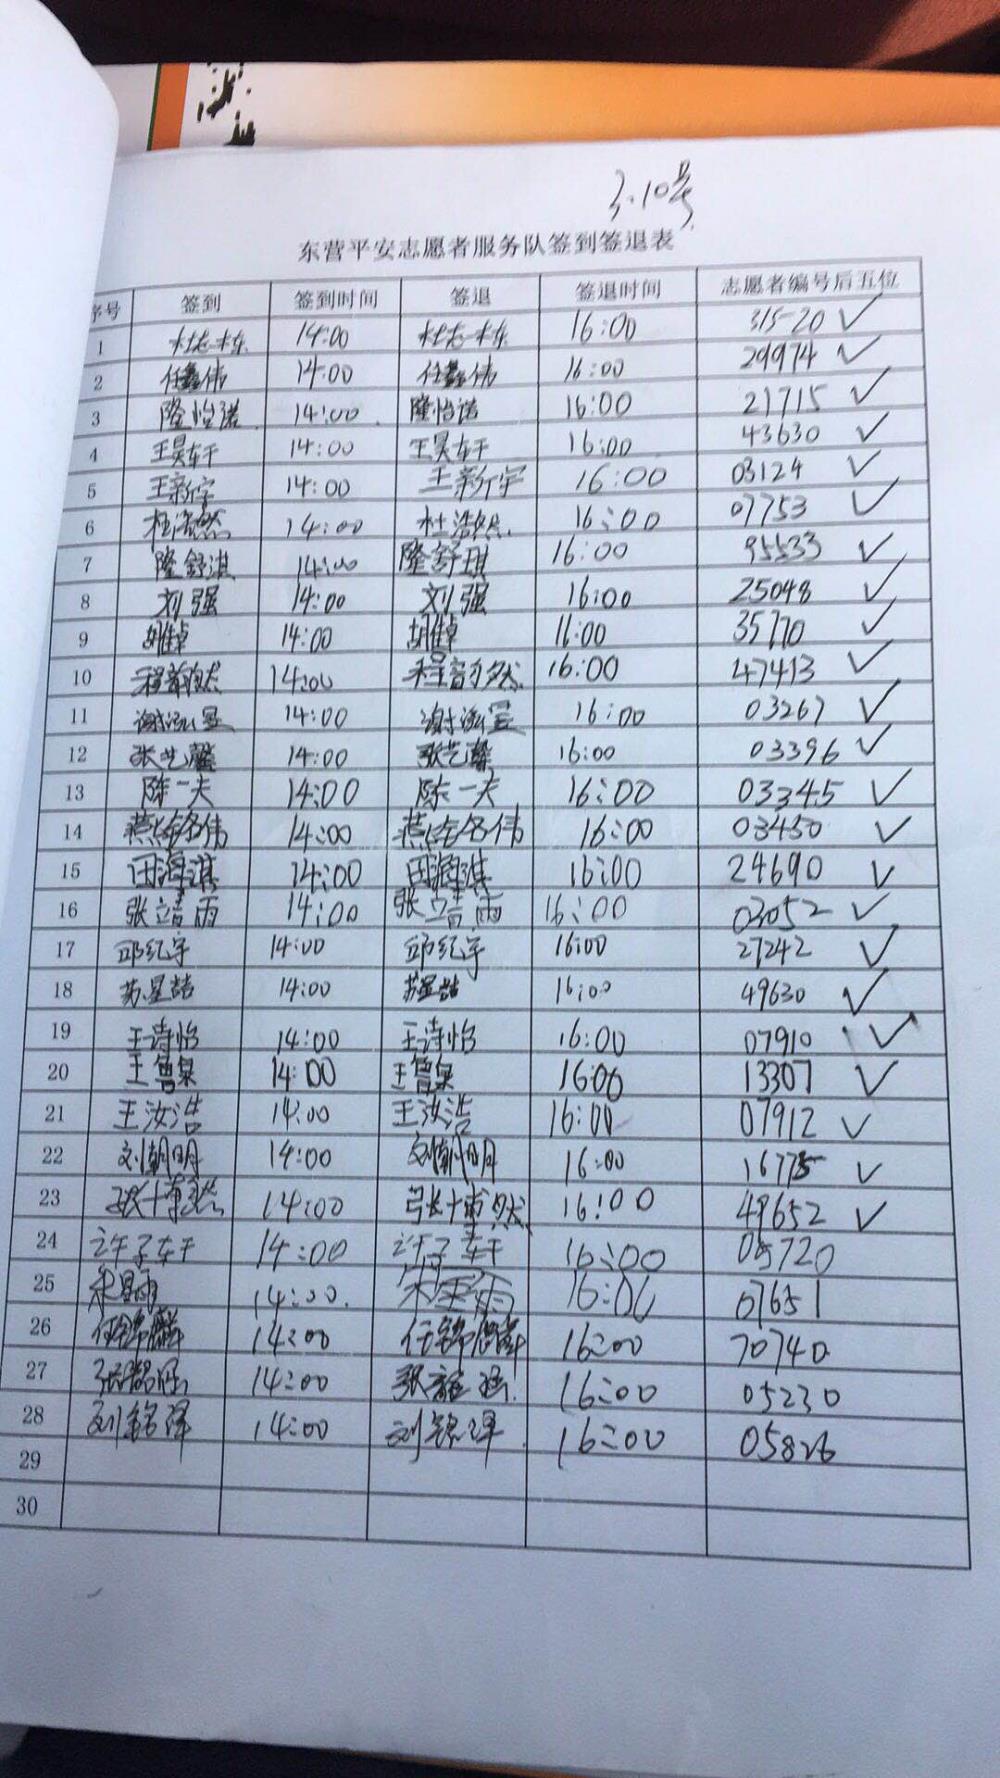 3.10号
东营平安志愿者服务队签到签退表
序号 签到 签到时间 签退 签退时间 志愿者编号后五位
1 杜志栋 14:00 杜志栋 16:00 31520 ✓
2 任鑫伟 14:00 任鑫伟 16:00 29974 ✓
3 隆怡诺 14:00 隆怡诺 16:00 21715 ✓
4 王昊轩 14:00 王昊轩 16:00 43630 ✓
5 王新宇 14:00 王新宇 16:00 03124 ✓
6 杜浩然 14:00 杜浩然 16:00 07753 ✓
7 隆舒淇 14:00 隆舒琪 16:00 95533 ✓
8 刘强 14:00 刘强 16:00 25048 ✓
9 14:00 16:00 35770 ✓
10 程韵然 14:00 程韵然 16:00 47413 ✓
11 谢泓昱 14:00 谢泓昱 16:00 03267 ✓
12 张艺馨 14:00 张艺馨 16:00 03396 ✓
13 陈一夫 14:00 陈一夫 16:00 03345 ✓
14 燕伟 14:00 燕伟 16:00 03450 ✓
15 田海淇 14:00 田海淇 16:00 24690 ✓
16 张立靖雨 14:00 张立靖雨 16:00 03052 ✓
17 邱纪宇 14:00 邱纪宇 16:00 27242 ✓
18 苏星喆 14:00 苏星喆 16:00 49630 ✓
19 王诗怡 14:00 王诗怡 16:00 07910 ✓
20 王鲁杲 14:00 王鲁杲 16:00 13307 ✓
21 王汝浩 14:00 王汝浩 16:00 07912 ✓
22 刘朝明 14:00 刘朝明 16:00 16775 ✓
23 张博然 14:00 张博然 16:00 49652 ✓
24 许子轩 14:00 许子轩 16:00 05720
25 14:00 16:00 07651
26 任锦麟 14:00 任锦麟 16:00 70740
27 张 14:00 张 16:00 05230
28 刘铭泽 14:00 刘铭泽 16:00 05826
29
30